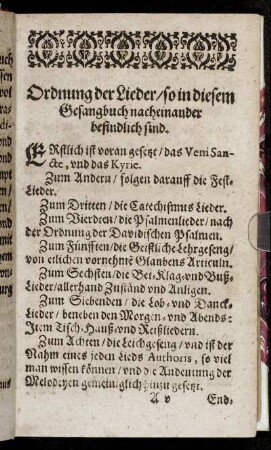 Ordnung der Lieder/ so in diesem
Gesangbuch nacheinander
befindlich sind.
ERstlich ist voran gesetzt/ das Veni San-
cte, vnd das Kyrie.
Zum Andern/ folgen darauff die Fest-
Lieder.
Zum Dritten/ die Catechismus Lieder.
Zum Vierdten/ die Psalmenlieder/ nach
der Ordnung der Davidischen Psalmen.
Zum Fünfften/ die Geistliche Lehrgeseng/
von etlichen vornehme Glaubens Articuln.
Zum Sechsten/ die Bet-Klag-vnd Buß-
Lieder/ allerhand Zuständ vnd Anligen.
Zum Siebenden/ die Lob- vnd Danck-
Lieder/ beneben den Morgen- vnd Abends:
Item Tisch-Hauß-vnd Reißliedern.
Zum Achten/ die Leichgeseng/ vnd ist der
Nahm eines jeden Lieds Authoris, so viel
man wissen können/ vnd die Andeutung der
Melodeyen gemeiniglich hinzu gesetzt.
A v End-